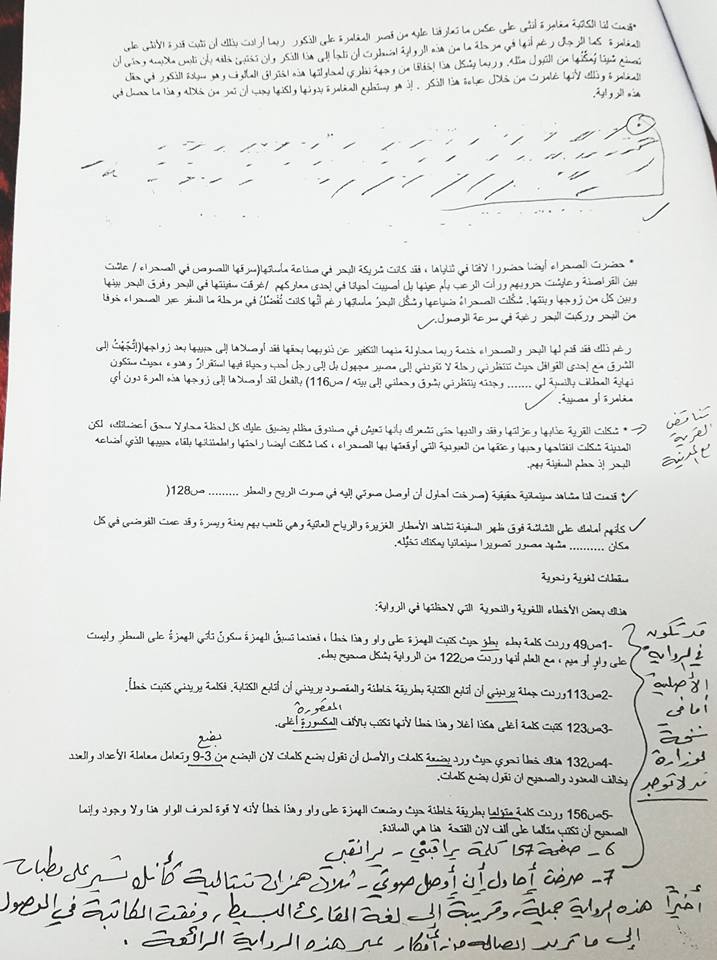 *قدمت لنا الكاتبة مغامرة أنثى على عكس ما تعارفنا عليه من قصر المغامرة على الذكور ربما أرادت بذلك أن تثبت قدرة الأنثى على
المغامرة كما الرجال رغم أنها في مرحلة ما من هذه الرواية اضطرت أن تلجأ إلى هذا الذكر وان تختبئ خلفه بأن تلبس ملابسه وحتى أن
تصنع شيئا يُمكّنها من التبول مثله. وربما يشكل هذا إخفاقا من وجهة نظري لمحاولتها هذه اختراق المألوف وهو سيادة الذكور في حقل
المغامرة وذلك لأنها غامرت من خلال عباءة هذا الذكر . إذ هو يستطيع المغامرة بدونها ولكنها يجب أن تمر من خلاله وهذا ما حصل في
هذه الرواية.
* حضرت الصحراء أيضا حضورا لافتا في ثناياها ، فقد كانت شريكة البحر في صناعة مأساتها(سرقها اللصوص في الصحراء / عاشت
بين القراصنة وعايشت حروبهم ورأت الرعب بأم عينها بل أصيبت أحيانا في إحدى معاركهم /غرقت سفينتها في البحر وفرق البحر بينها
وبين كل من زوجها وبنتها. شكّلت الصحراءُ ضياعها وشكّل البحرُ مأساتِها رغم أنّها كانت تُفَضّلُ في مرحلة ما السفر عبر الصحراء خوفا
من البحر وركبت البحر رغبة في سرعة الوصول.
رغم ذلك فقد قدم لها البحر والصحراء خدمة ربما محاولة منهما التكفير عن ذنوبهما بحقها فقد أوصلاها إلى حبيبها بعد زواجها(اتّجَهْتُ إلى
الشرق مع إحدى القوافل حيث تنتظرني رحلة لا تقودني إلى مصير مجهول بل إلى رجل أحب وحياة فيها استقرارٌ وهدوء ،حيث ستكون
نهاية المطاف بالنسبة لي ....... وجدته ينتظرني بشوق وحملني إلى بيته / ص116) بالفعل لقد أوصلاها إلى زوجها هذه المرة دون أي
مغامرة أو مصيبة.
* شكلت القرية عذابها وعزلتها وفقد والديها حتى تشعرك بأنها تعيش في صندوق مظلم يضيق عليك كل لحظة محاولا سحق أعضائك، لكن
المدينة شكلت انفتاحها وحبها وعتقها من العبودية التي أوقعتها بها الصحراء ، كما شكلت أيضا راحتها واطمئنانها بلقاء حبيبها الذي أضاعه
البحر إذ حطم السفينة بهم.
تناقض
القرية
مع المدينة
* قدمت لنا مشاهد سينمائية حقيقية (صرخت أحاول أن أوصل صوتي إليه في صوت الريح والمطر ......... ص128(
كأنهم أمامك على الشاشة فوق ظهر السفينة تشاهد الأمطار الغزيرة والرياح العاتية وهي تلعب بهم يمنة ويسرة وقد عمت الفوضى في كل
مكان .......... مشهد مصور تصويرا سينمائيا يمكنك تخيُّله.
سقطات لغوية ونحوية
هناك بعض الأخطاء اللغوية والنحوية التي لاحظتها في الرواية:
-1ص49 وردت كلمة بطء بطؤ حيث كتبت الهمزة على واو وهذا خطأ ، فعندما تسبقُ الهمزةَ سكونٌ تأتي الهمزةُ على السطرِ وليست
على واوٍ أو ميم ، مع العلم أنها وردت ص122 من الرواية بشكل صحيح بطء.
-2ص113وردت جملة يرديني أن أتابع الكتابة بطريقة خاطئة والمقصود يريدني أن أتابع الكتابة. فكلمة يريدني كتبت خطأ.
المقصورة
-3ص123 كتبت كلمة أغلى هكذا أغلا وهذا خطأ لأنها تكتب بالألف المكسورة أغلى.
بضع
-4ص132 هناك خطأ نحوي حيث ورد بضعة كلمات والأصل أن نقول بضع كلمات لان البضع من 3-9 وتعامل معاملة الأعداد والعدد
يخالف المعدود والصحيح ان نقول بضع كلمات.
-5ص156 وردت كلمة متؤلما بطريقة خاطئة حيث وضعت الهمزة على واو وهذا خطأ لأنه لا قوة لحرف الواو هنا ولا وجود وإنما
الصحيح أن تكتب متألما على ألف لان الفتحة هنا هي السائدة.
قد تكون
في الرواية
الأصلية
أما في
نسخة
الوزارة
قد لا توجد
6- صفحة 157 كلمة يراقبني - يرانقبي
7- صرخت أحاول أن أوصل صوتي - ثلاث همزات متتالية كأنك تسير على مطبات
أخيراً هذه الرواية جميلة، وقريبة إلى لغة القارئ البسيط، وفقت الكاتبة في الوصول
إلى ما تريد ايصاله من أفكار عبر هذه الرواية الرائعة .